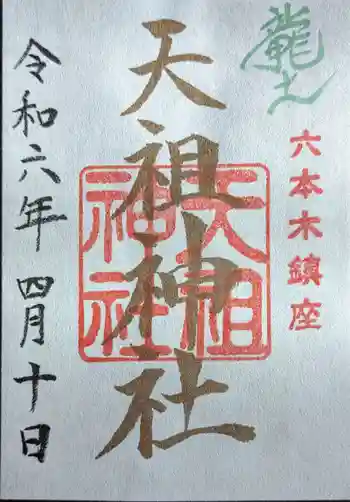 龍土
六本木鎮座
天祖神社
天祖神社
令和六年 四月十日